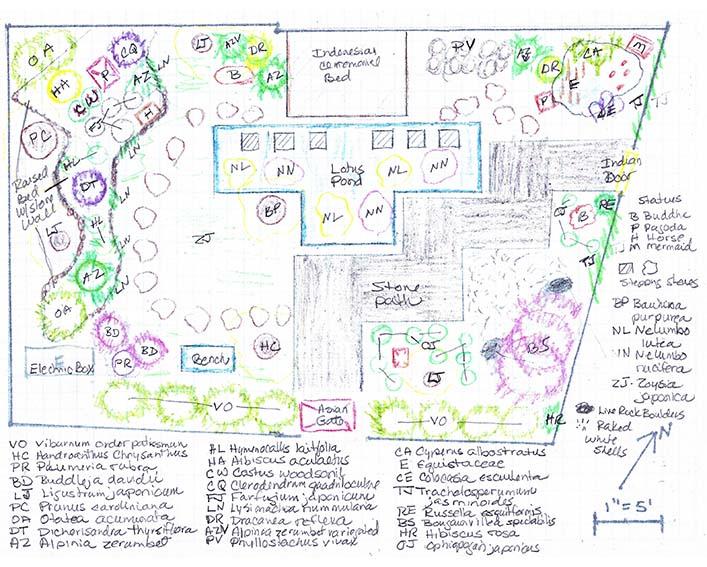 OA
CQ
LN
LJ
AZV
DR
B
AZ
Indonesian
Ceremonial
Bed
PV
AZ
CA
M
DR
E
P
CE
TJ
TJ
HA
P
AZ
CW
FJ
H
LN
PC
HL
LN
Raised
Bed
w/Stone
Wall
DT
HL
LJ
LN
AZ
LN
OA
NL
NN
Lotus
Pond
NL
NN
BP
NL
NN
ZJ
Indian
Door
OJ
B
RE
TJ
Status
B Buddha
P Pagoda
H Horse
M mermaid
Stepping Stones
BP Bauhinia
purpurea
NL Nelumbo
lutea
NN Nelumbo
nucifera
ZJ Zoysia
japonica
Live Rock Boulders
Raked
white
shells
N
1"=5'
Stone
path
BD
BD
PR
Electric Box
E
Bench
HC
P
OJ
M
LJ
BS
VO
Asian
Gate
VO
HR
VO Viburnum
HC Handroanthus Chrysanthus
PR Plumeria rubra
BD Buddleja
LJ Ligustrum japonicum
PC Prunus caroliniana
OA Otatea acuminata
DT Dichorisandra thyrsiflora
AZ Alpinia zerumbet
HL Hymenocallis latifolia
HA Hibiscus
CW Costus woodsonii
CQ Clerodendrum quadriloculare
FJ Farfugium japonicum
LN Lysimachia nummularia
DR Dracanea reflexa
AZV Alpinia zerumbet variegated
PV Phyllostachys vivax
CA Cyperus albostratus
E Equistaceae
CE Colocasia esculenta
TJ Trachelospermum
jasminoides
RE Russelia equisiformis
BS Bougainvillea spectabilis
HR Hibiscus rosa
OJ Ophiopogon japonicus